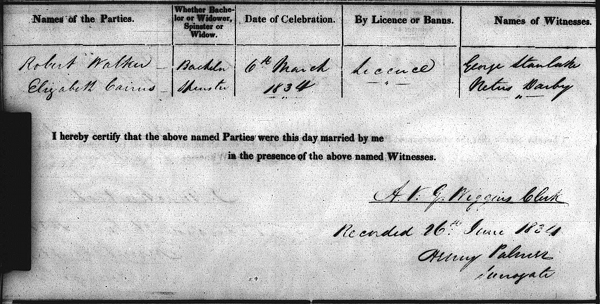 Names of the Parties. Whether Bachelor or Widower, Spinster or Widow. Date of Celebration. By Licence or Banns. Names of Witnesses.
Robert Walker Bachelor 6th March Licence George Stanlake
Elizabeth Cairns Spinster 1834 " Darby
I hereby certify that the above named Parties were this day married by me
in the presence of the above named Witnesses.
A. V. G. Wiggins Clerk
Recorded 26th June 1834
Henry Palmer
Surrogate